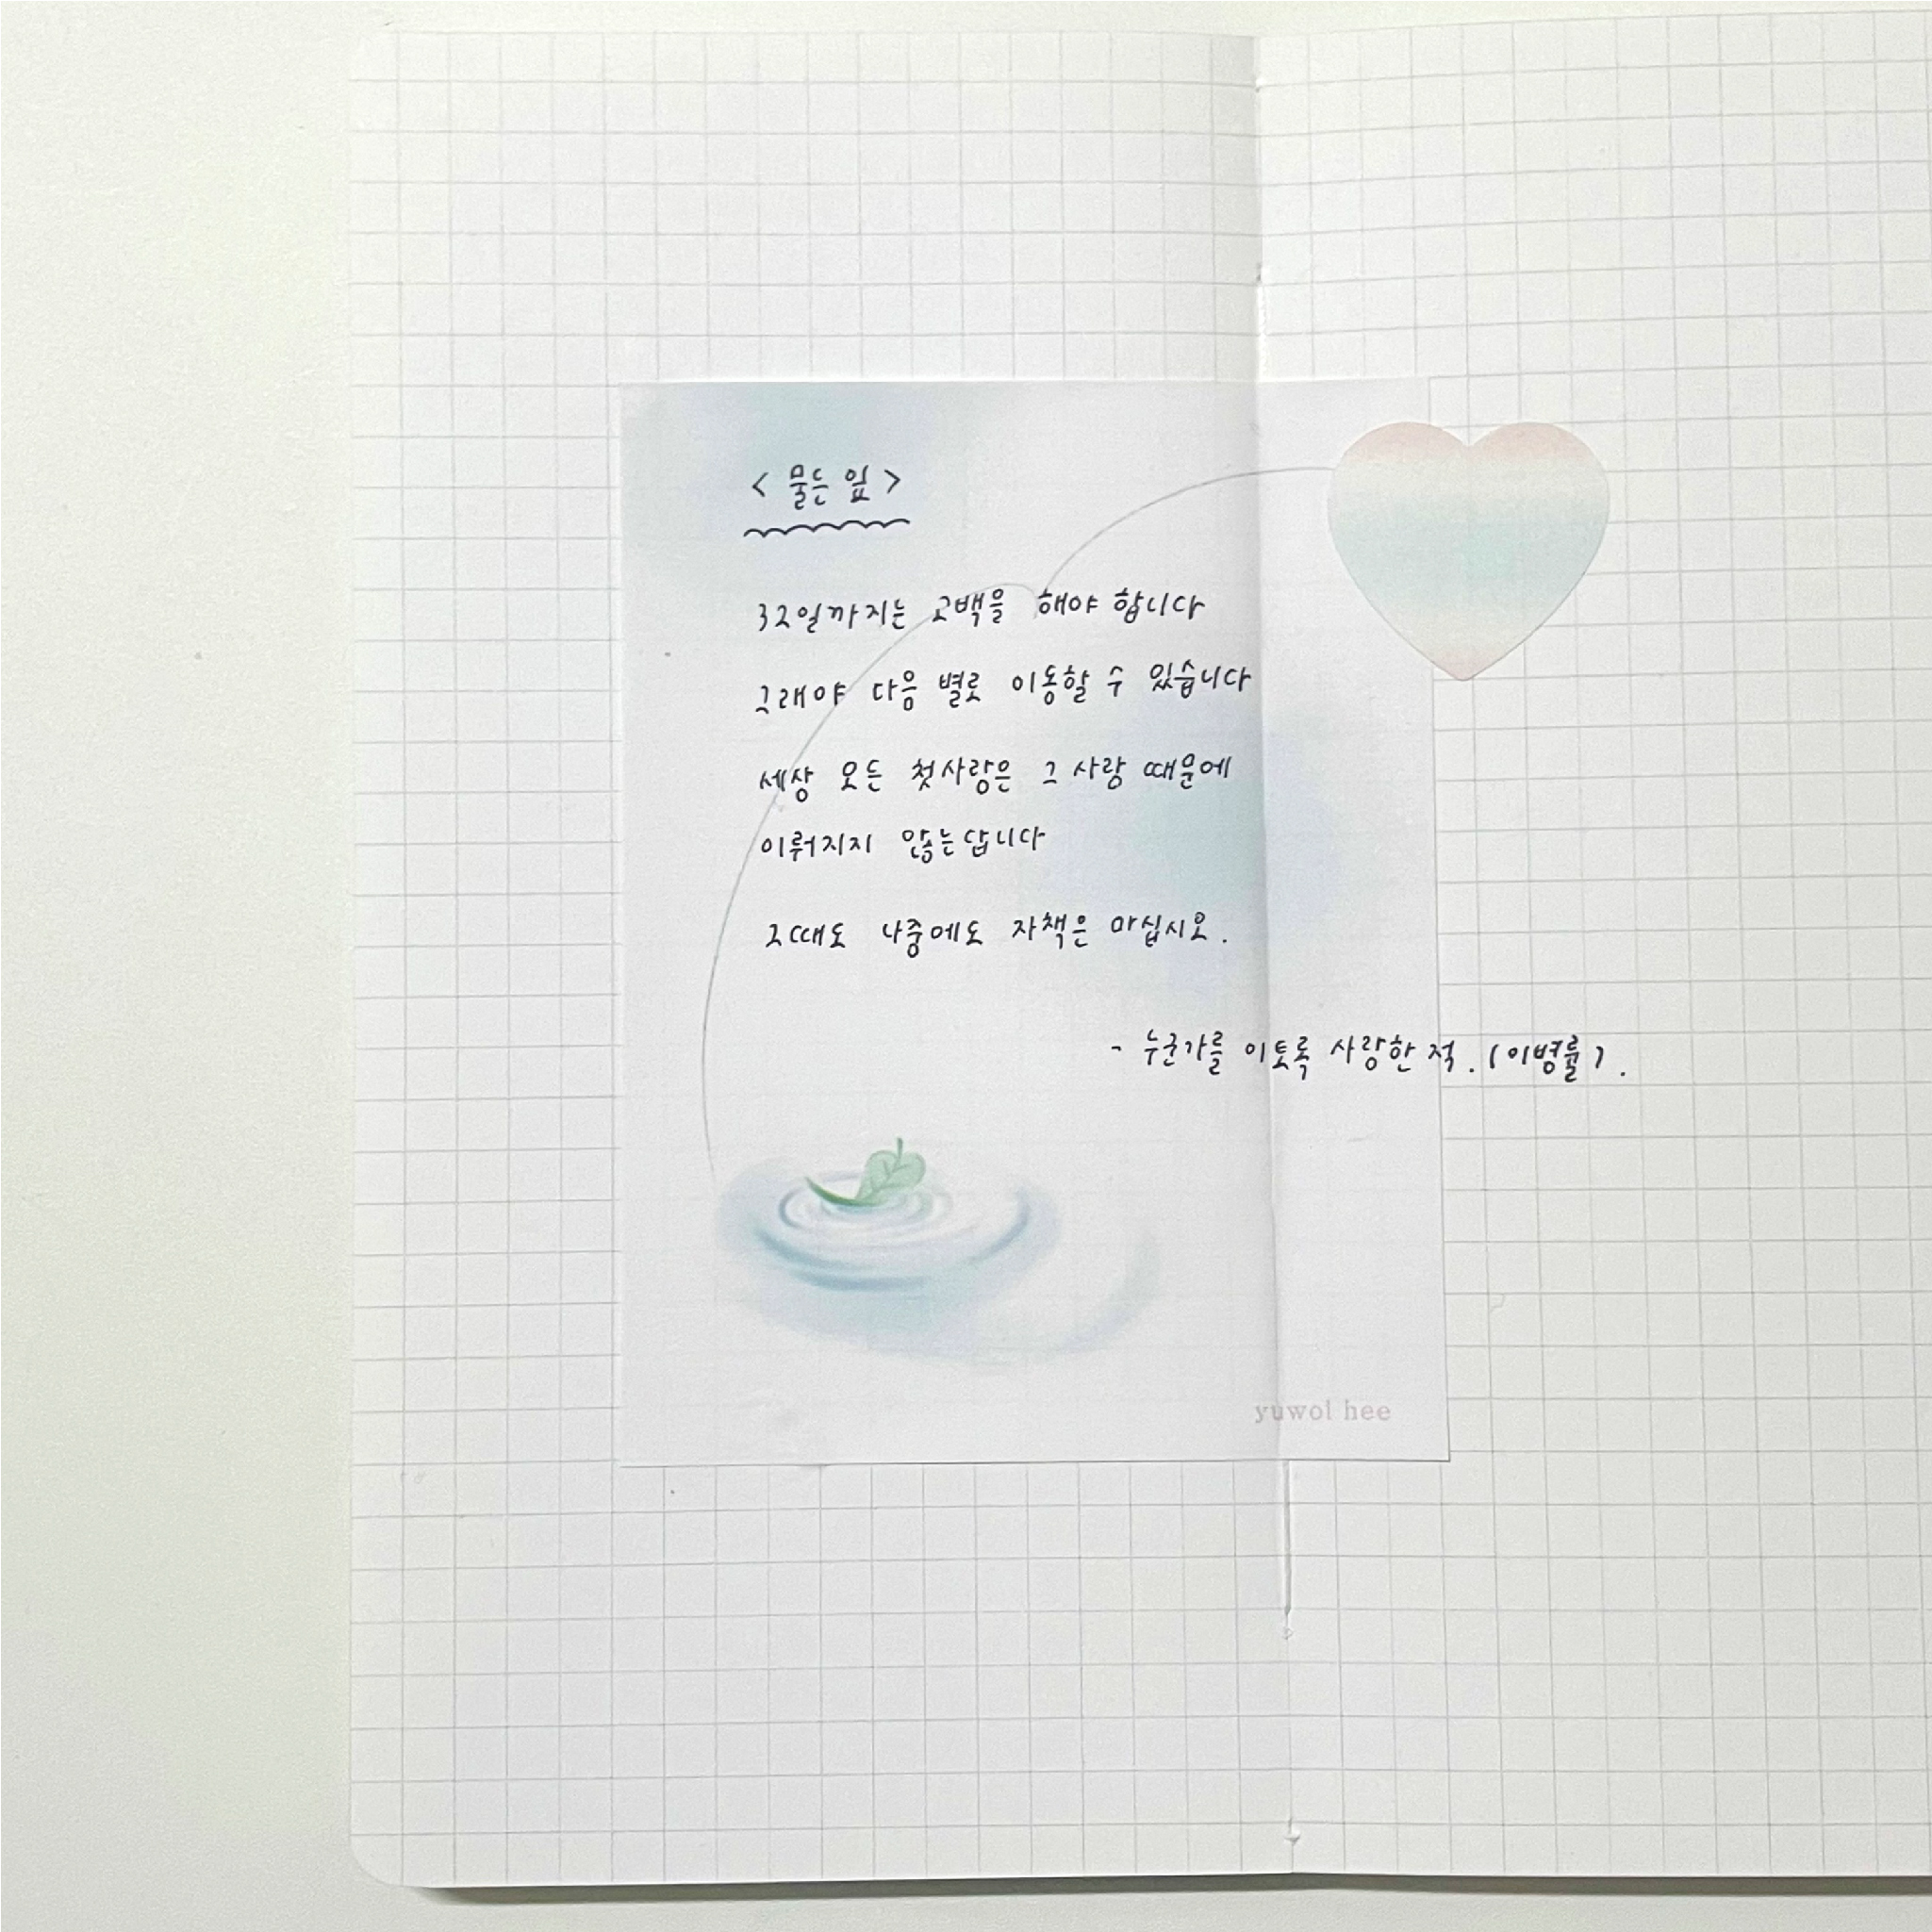 < 물든 잎 >
32일까지는 고백을 해야 합니다
그래야 다음 별로 이동할 수 있습니다
세상 모든 첫사랑은 그 사랑 때문에
이뤄지지 않는답니다
그때도 나중에도 자책은 마십시오.
- 누군가를 이토록 사랑한 적. (이병률).
yuwol hee